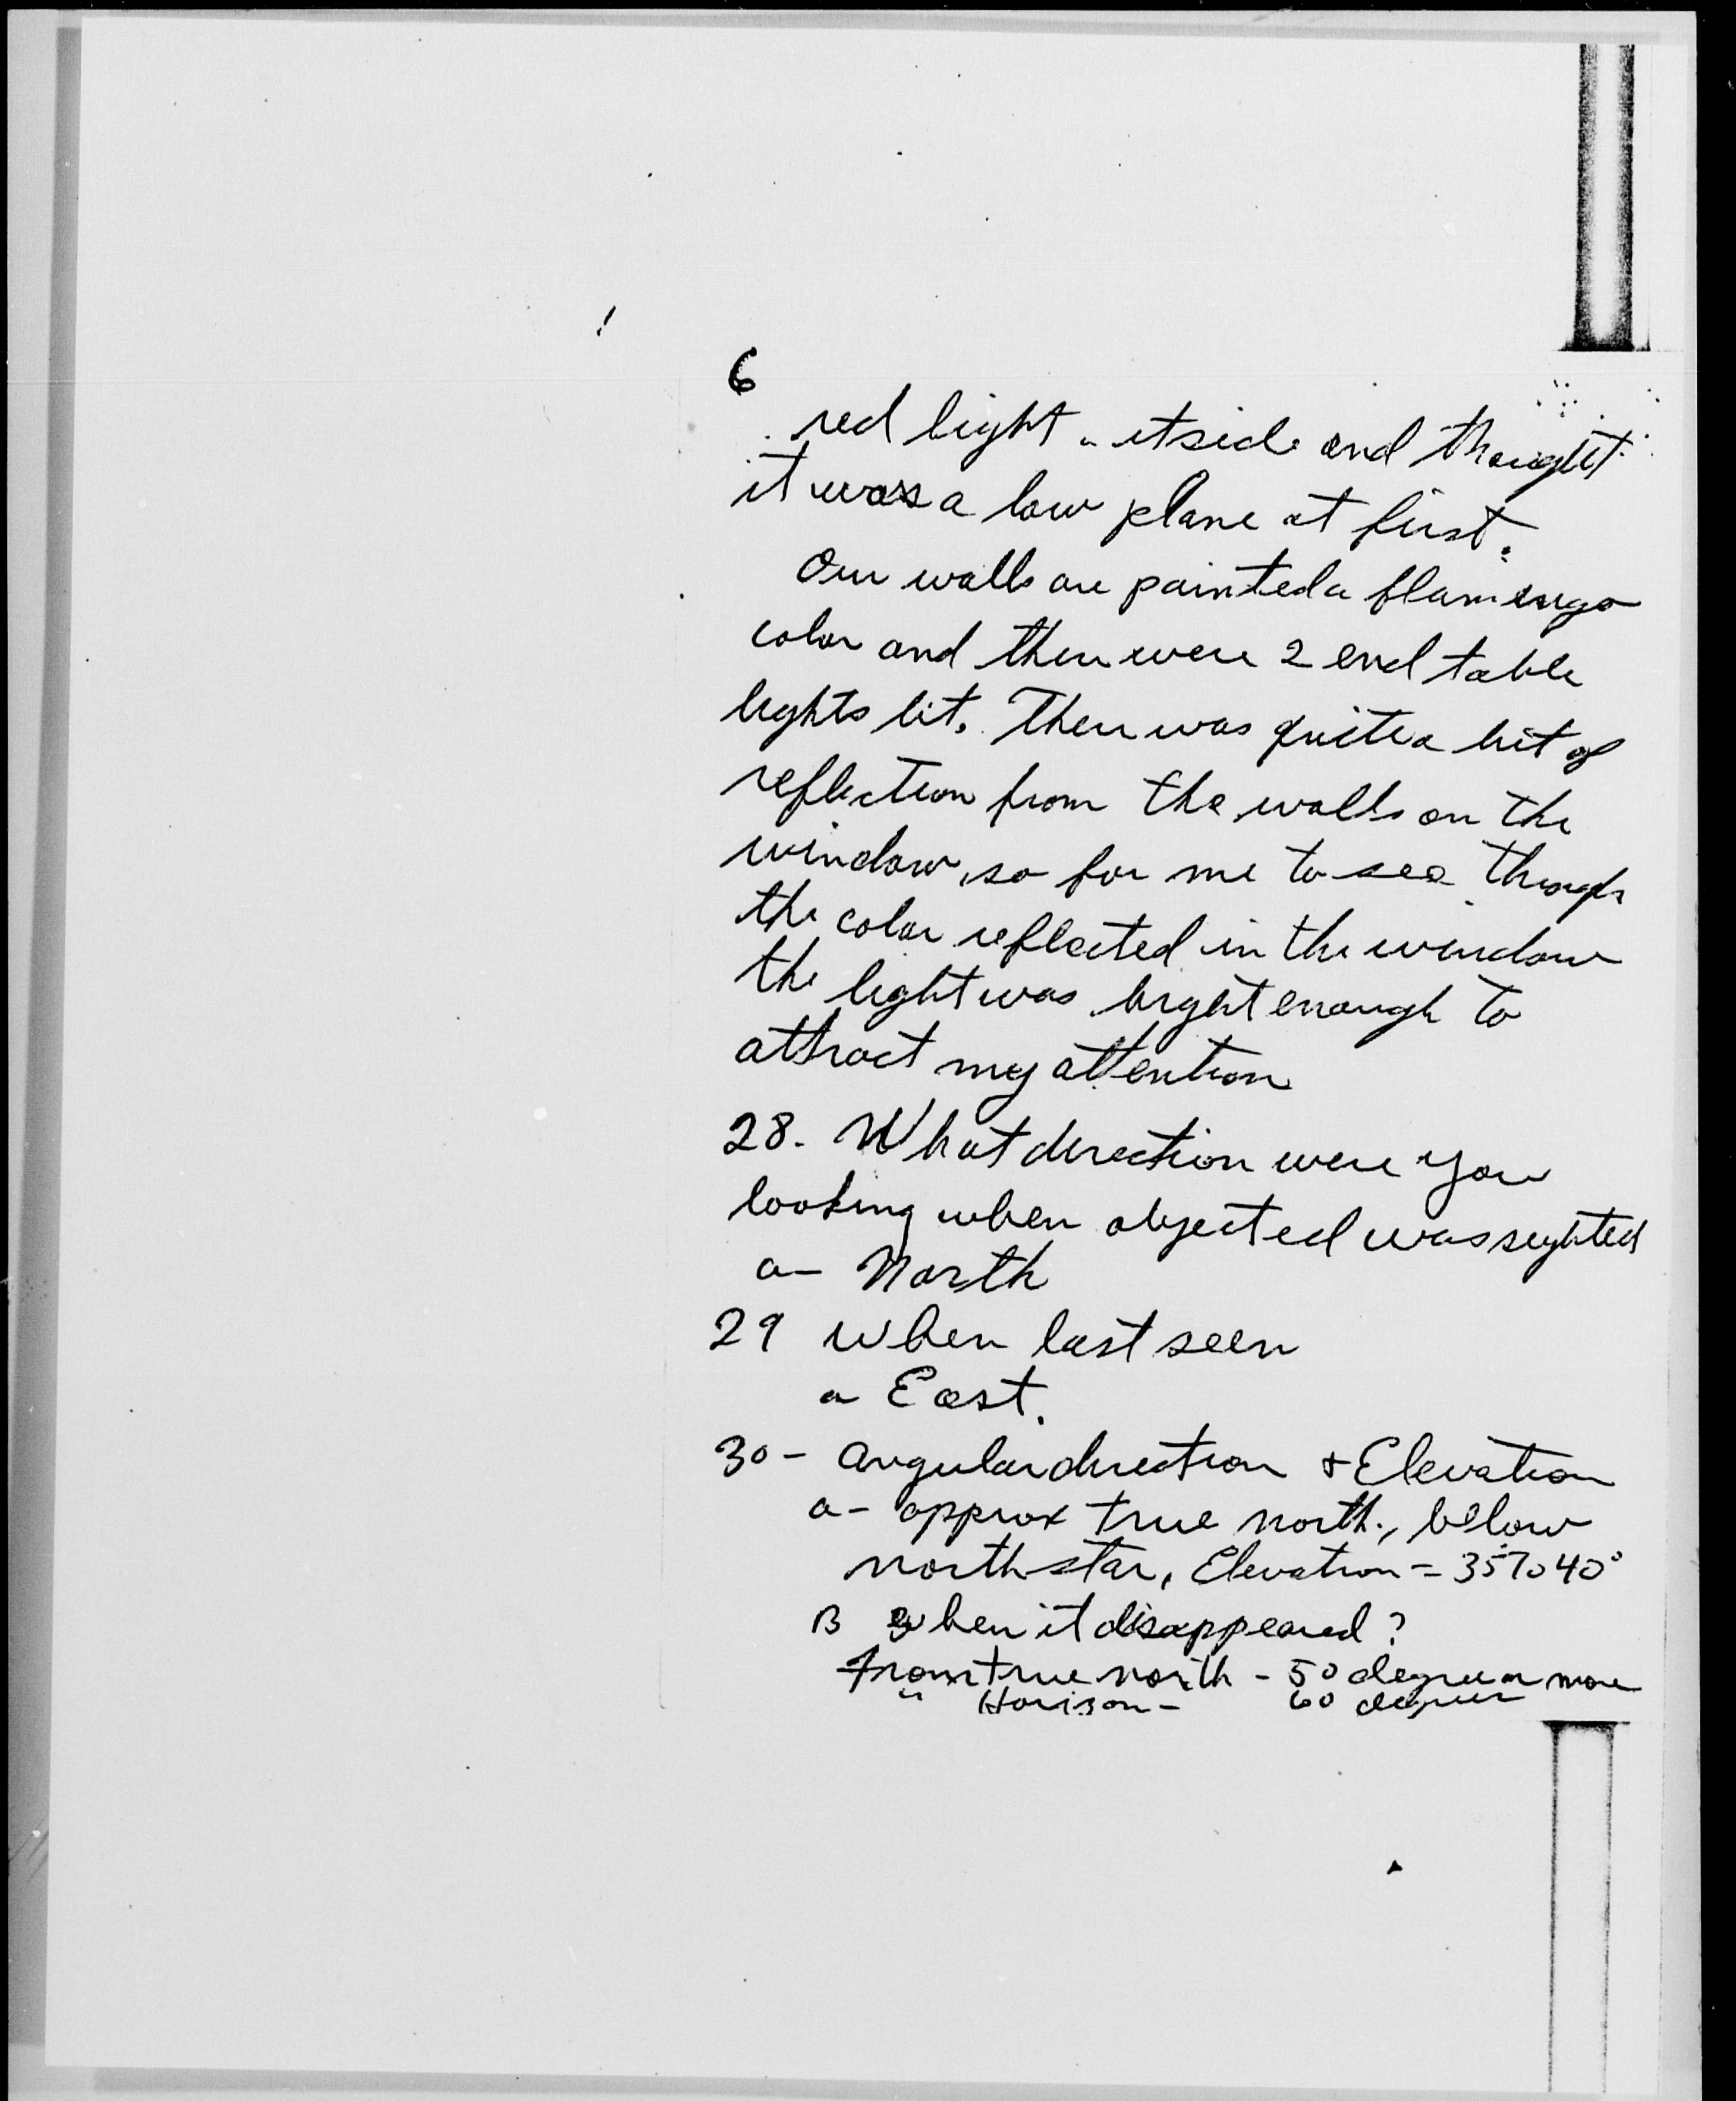 6
red light outside and thought
it was a low plane at first.
Our walls are painted a flamengo
color and there were 2 end table
lights lit. There was quite a bit of
reflection from the walls on the
window, so for me to see through
the color reflected in the window
the light was brght enough to
attract my attention
28. What direction were you
looking when objected was sighted
a- North
29 when last seen
a East.
30- Angular direction & Elevation
a- approx true north., below
north star, Elevation = 35 to 40°
B When it disappeared?
From true north - 50 degree or more
" Horison - 60 degree